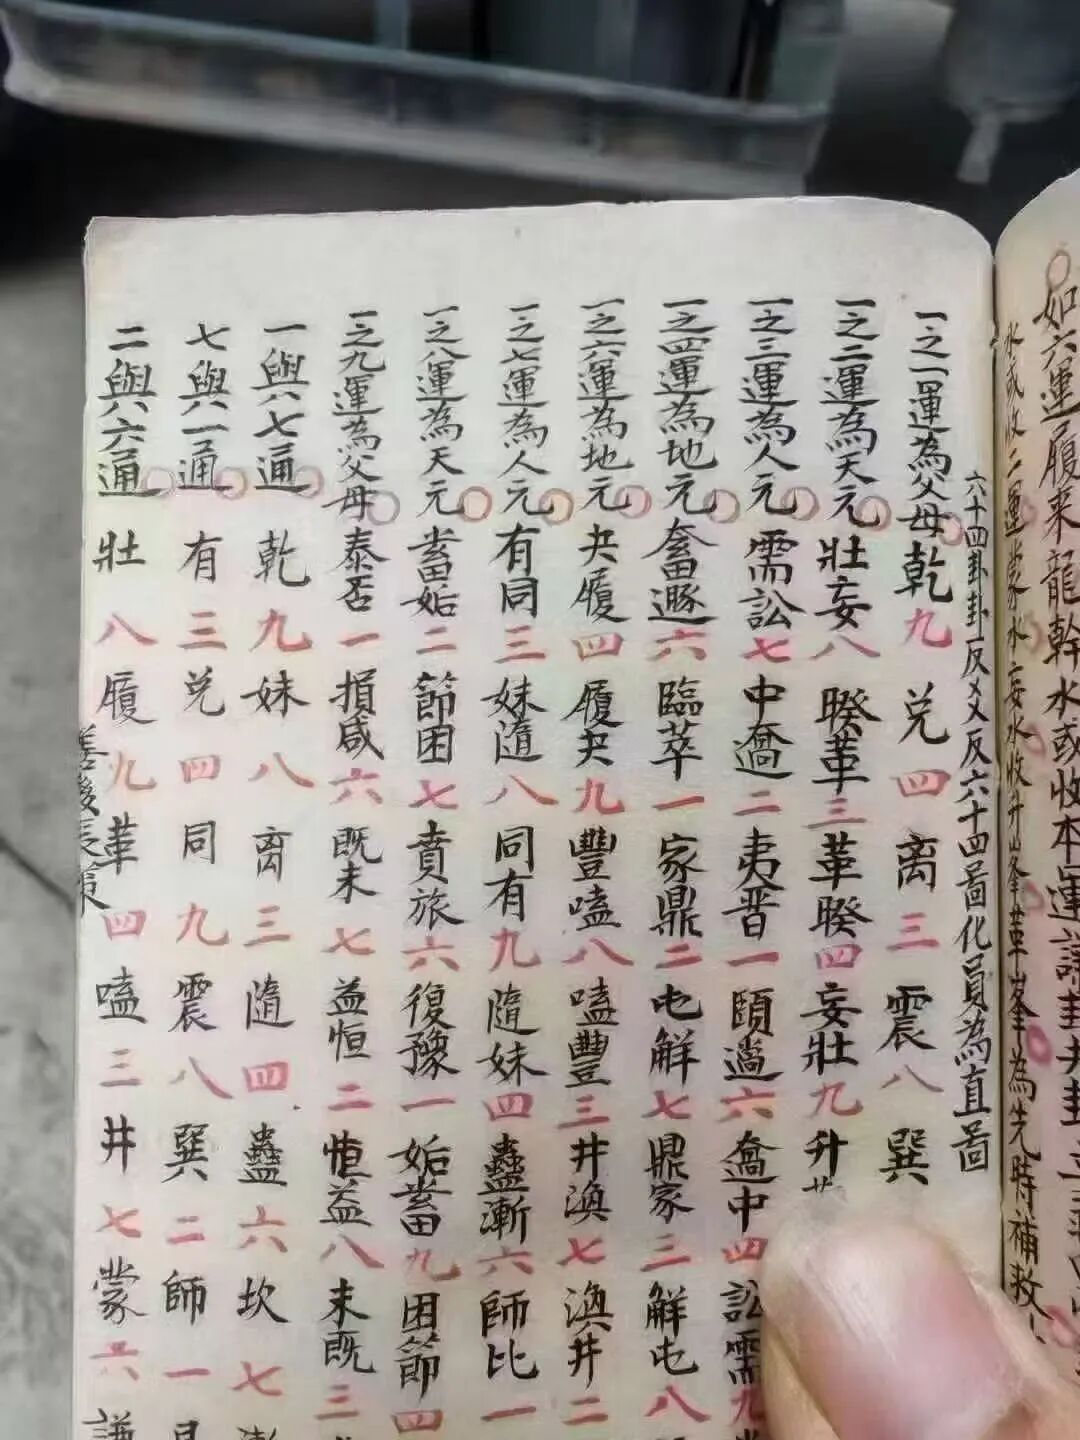 如六運履来龍幹水或收本運謙卦夬卦
水咸收二運蒙水妄水收升山峯革峯為先時補救
六十四卦卦反爻反六十四圖化員為直圖
一之一運為父母乾九兑四离三震八巽
一之二運為天元壯妄八睽革三革睽四妄壯九升
一之三運為人元需訟七中過二夷晋一頤過六過中四訟需九
一之四運為地元畜遯六臨萃一家鼎二屯解七鼎家三解屯八
一之六運為地元夬履四履夬九豐嗑八嗑豐三井渙七渙井二
一之七運為人元有同三妹隨八同有九隨妹四蠱漸六師比一
一之八運為天元畜姤二節困七賁旅六復豫一姤畜九困節四
一之九運為父母泰否一損咸六既未七益恒二恒益八未既三
一與七通乾九妹八离三隨四蠱六坎七
七與一通有三兑四同九震八巽二師一
二與六通壯八履九革四嗑三井七蒙六謙